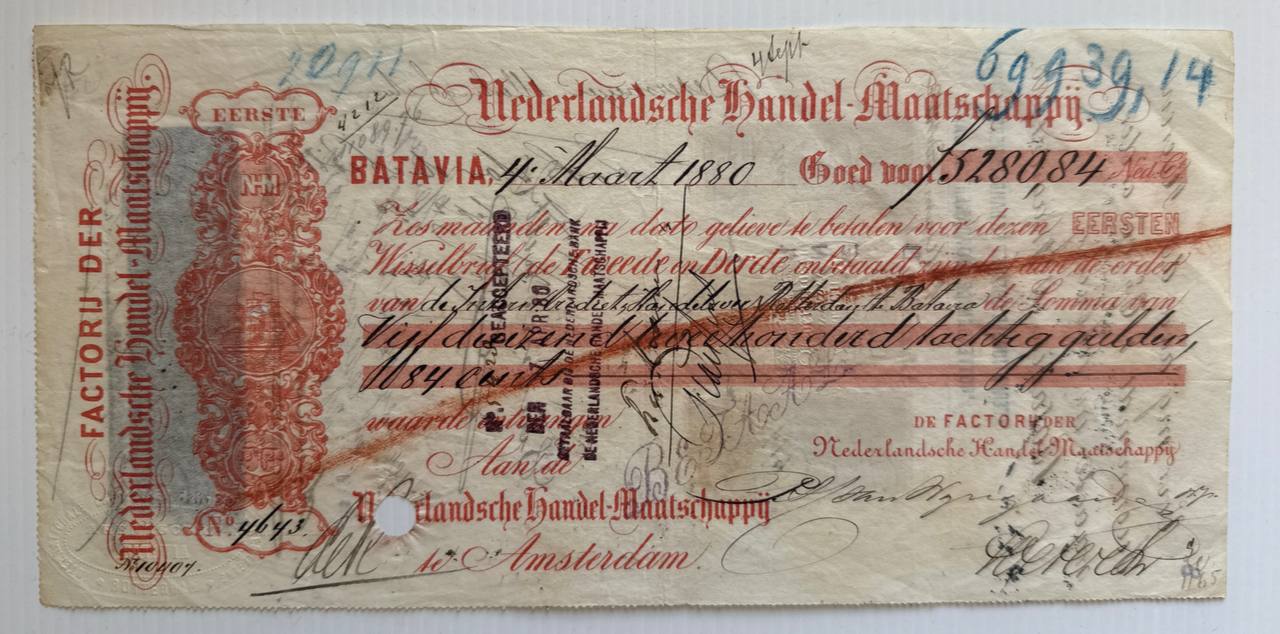 20911
4 Sept
69939,14
EERSTE
Nederlandsche Handel-Maatschappij.
BATAVIA, 4: Maart 1880 Goed voor f5280.84 Ned. Ct
Zes maanden na dato gelieve te betalen voor dezen EERSTEN
Wisselbrief de Tweede en Derde onbetaald zijnde aan de order
van de Internat. Crediet en Handelsver. Rotterdam te Batavia de Somma van
Vijf duizend twee honderd tachtig gulden,
84 cents
waarde ontvangen
Aan de
Nederlandsche Handel-Maatschappij
te Amsterdam.
DE FACTORIJ DER
Nederlandsche Handel Maatschappij
FACTORIJ DER
Nederlandsche Handel-Maatschappij.
N-M
No. 4643.
No 10407.
GEACCEPTEERD
DER
BETAALBAAR BIJ DE NEDERLANDSCHE BANK
DE NEDERLANDSCHE HANDELMAATSCHAPPIJ